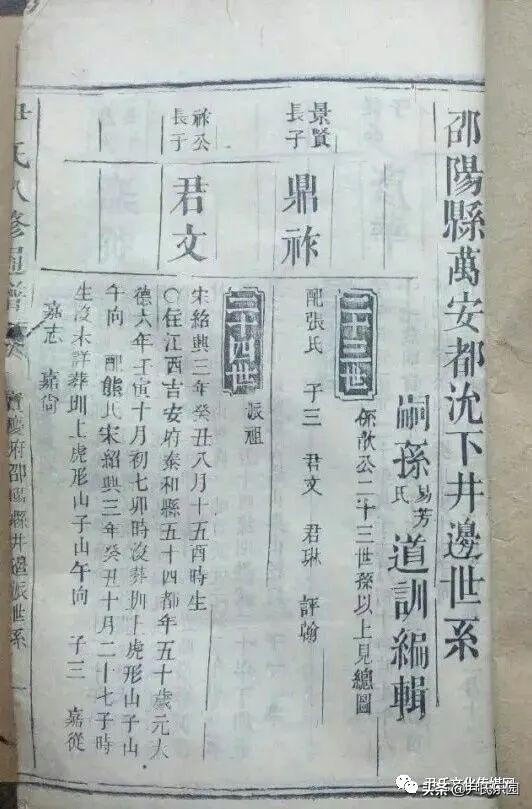 邵陽縣萬安都沇下井邊世系
嗣孫易芳道訓編輯
氏
景賢
長子
鼎祚
二十三世
係敵公二十三世孫以上見總圖
配張氏 子三 君文 君琳 評翰
祚公
長子
君文
二十四世
振祖
宋紹興三年癸丑八月十五酉時生
○住江西吉安府泰和縣五十四都年五十歲元大
德六年壬寅十月初七卯時沒葬圳上虎形山子山
午向 配熊氏宋紹興三年癸丑十月二十七子時
生沒未詳葬圳上虎形山子山午向 子三 嘉從
嘉志 嘉尚
尹氏八修通譜
寶慶府邵陽縣井邊派世系 一
尹氏文化传媒网
头条 @尹氏家园